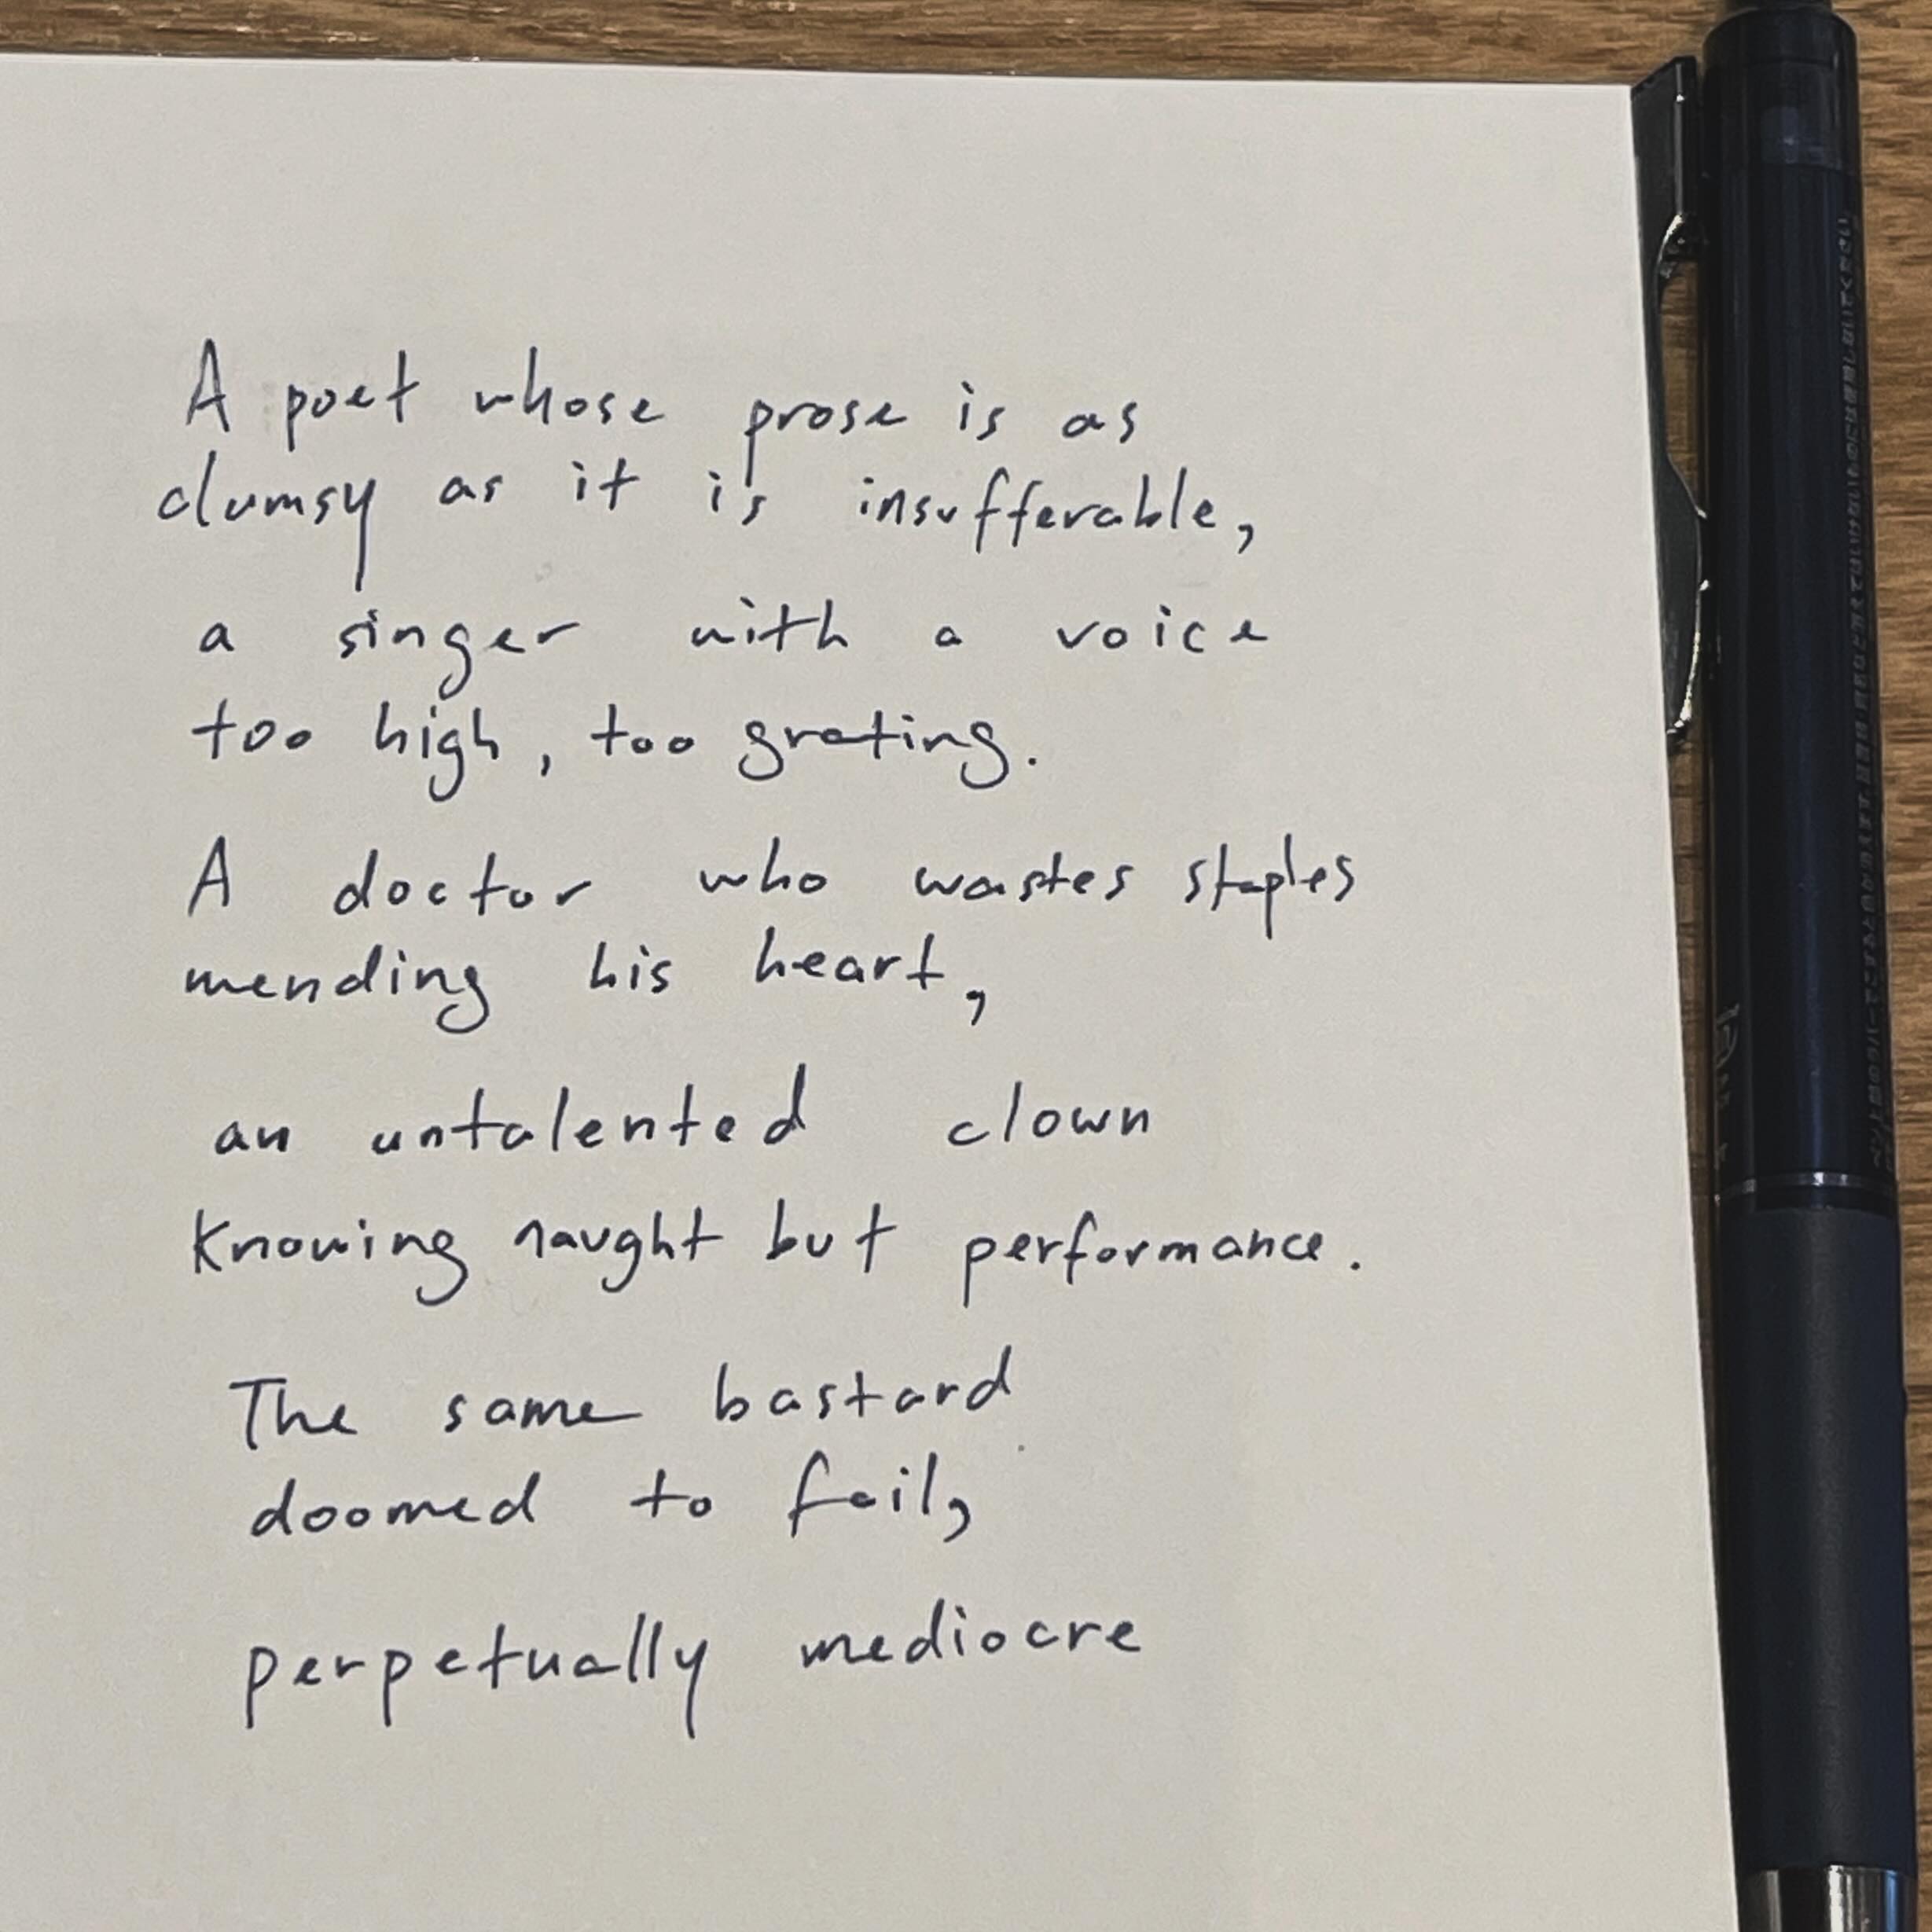 A poet whose prose is as
clumsy as it is insufferable,
a singer with a voice
too high, too grating.
A doctor who wastes staples
mending his heart,
an untalented clown
Knowing naught but performance.
The same bastard
doomed to fail,
perpetually mediocre